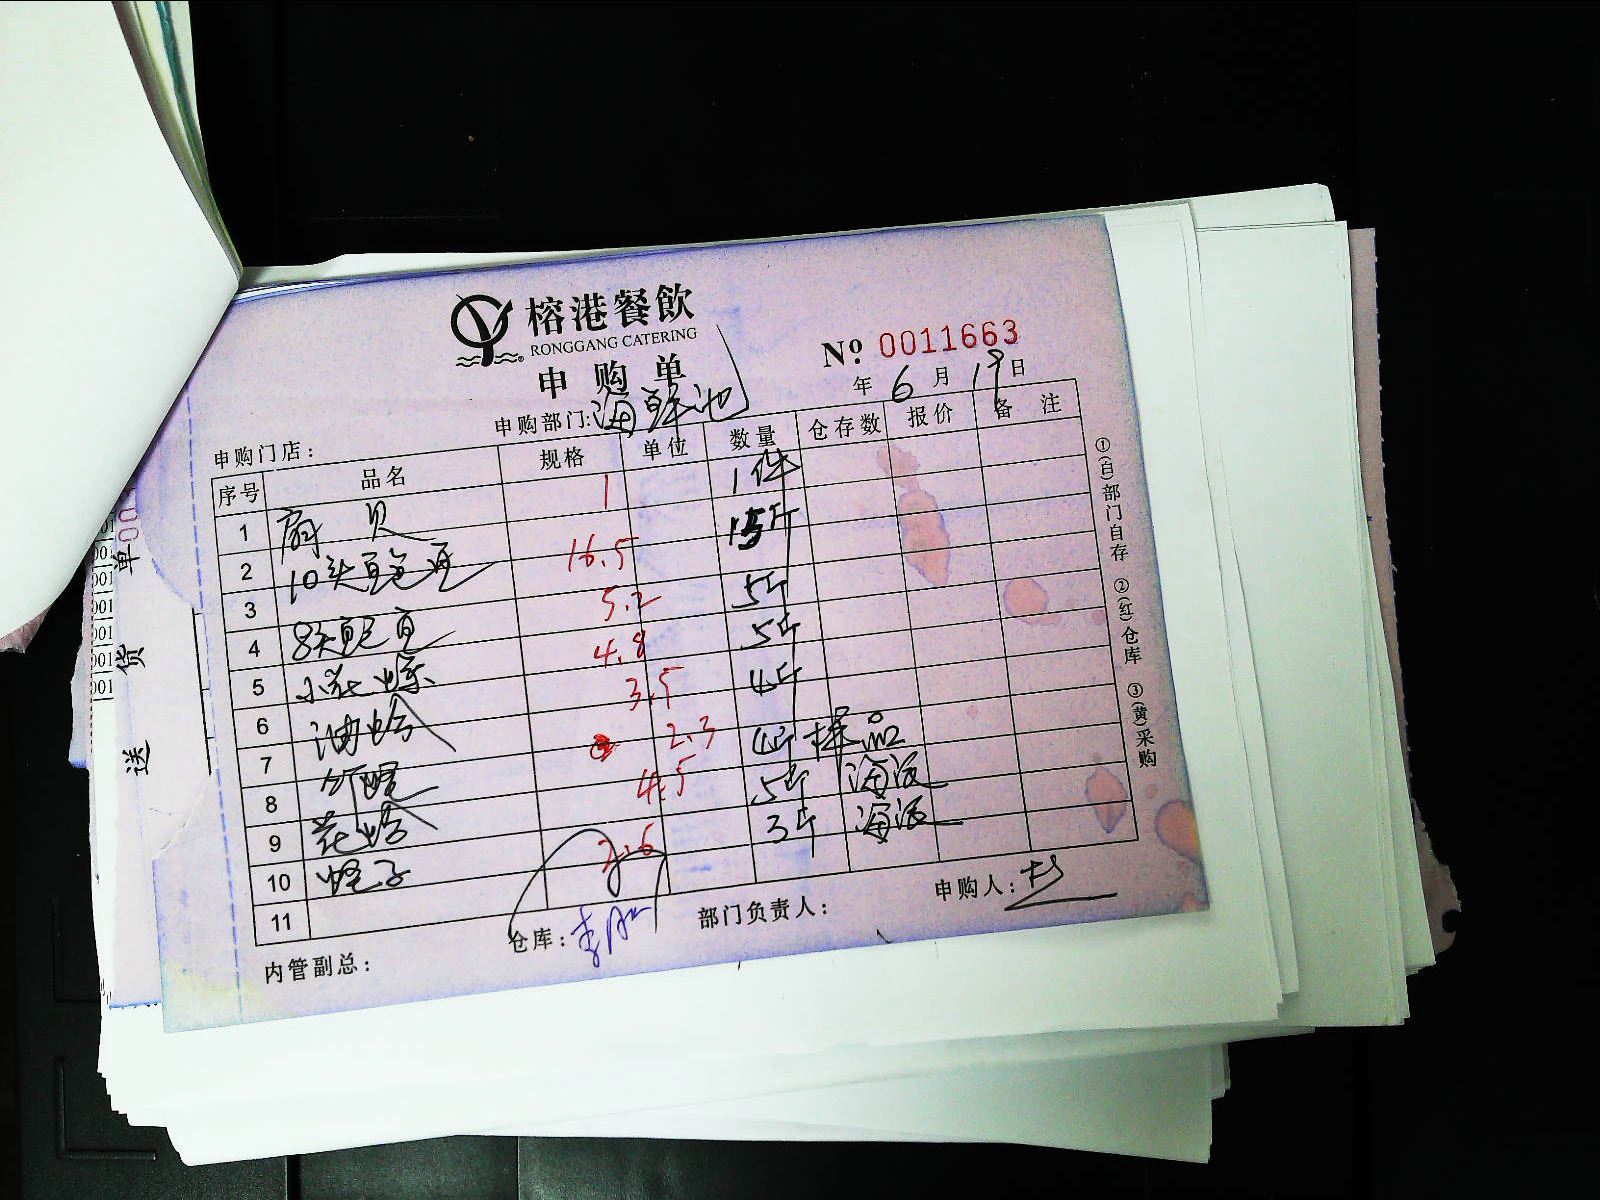 榕港餐飲
RONGGANG CATERING
申购单
No. 0011663
年 6 月 19 日
申购门店: 申购部门: 海鲜池
序号 品名 规格 单位 数量 仓存数 报价 备注
1 扇贝 1 1件
2 10头鲍鱼 16.5 15斤
3
4 8头鲍鱼 5.2 5斤
5 小花螺 4.8 5斤
6 油蛤 3.5 4斤
7 竹蛏 2.3 4斤 样品
8 花蛤 4.5 5斤 海派
9 蛏子 2.6 3斤 海派
10
11
内管副总: 仓库: 部门负责人: 申购人:
①(白)部门自存 ②(红)仓库 ③(黄)采购
送货单
001
001
001
001
001
001